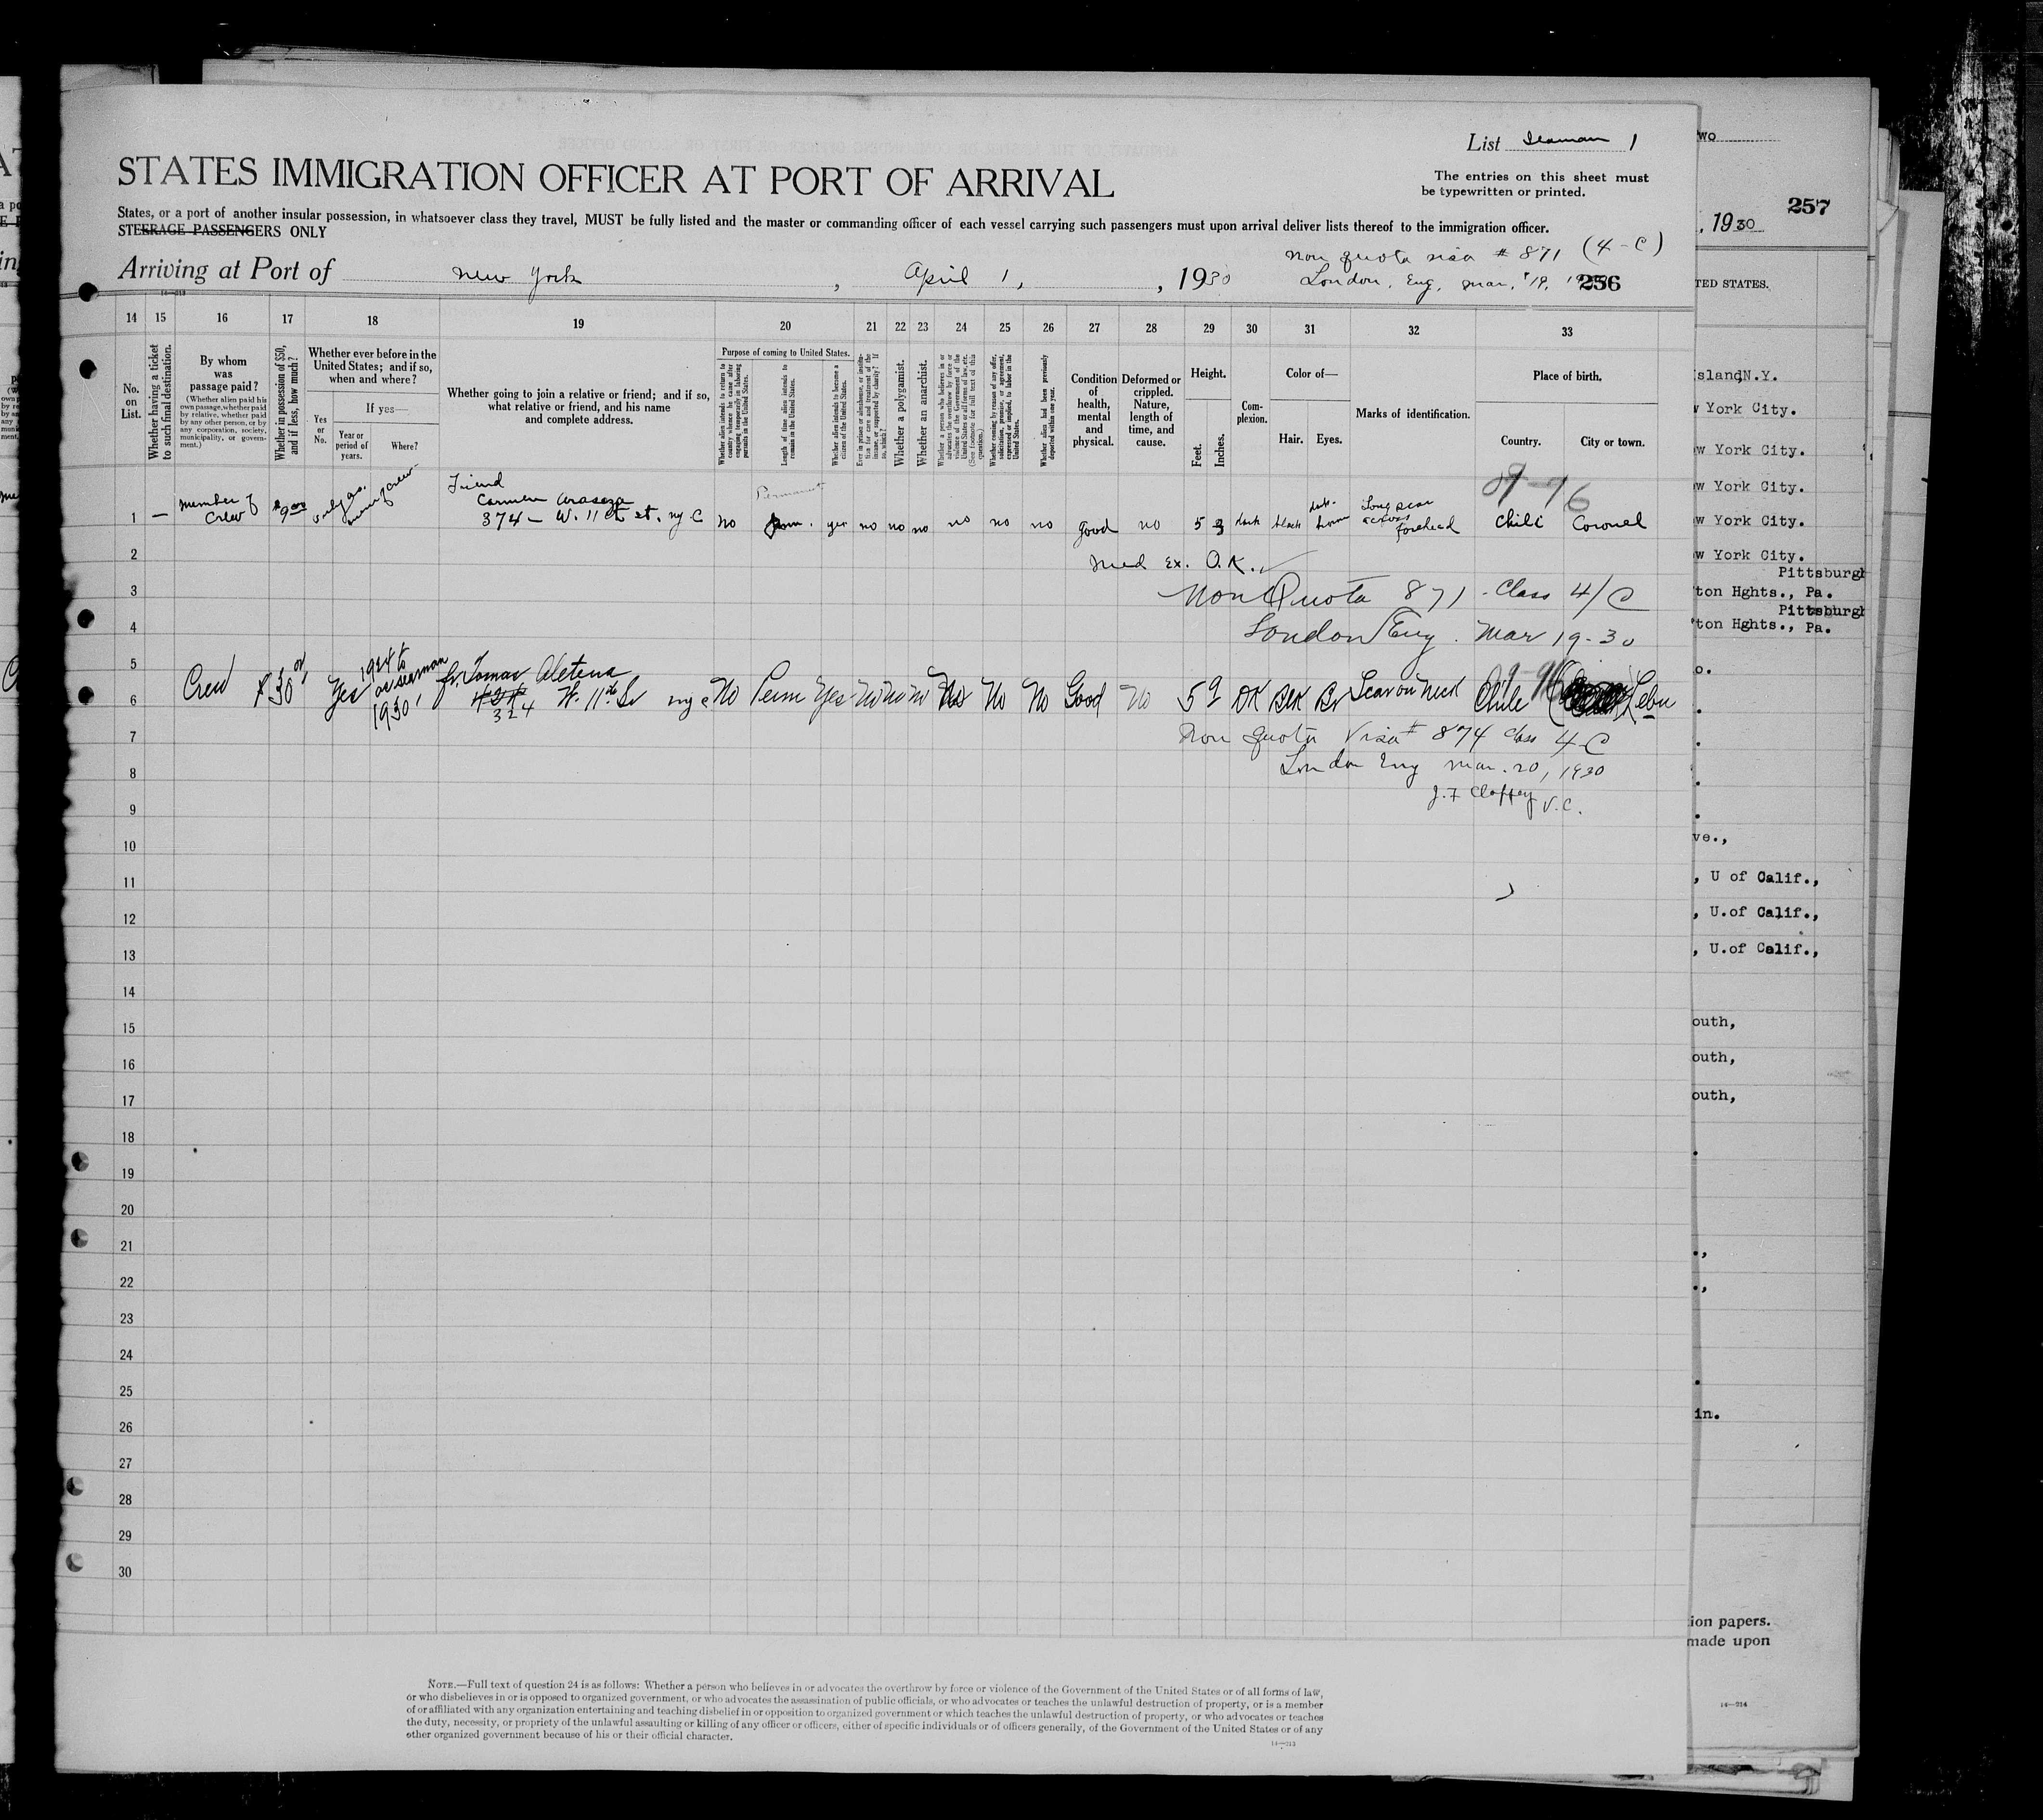 List Seaman 1
STATES IMMIGRATION OFFICER AT PORT OF ARRIVAL
The entries on this sheet must
be typewritten or printed.
States, or a port of another insular possession, in whatsoever class they travel, MUST be fully listed and the master or commanding officer of each vessel carrying such passengers must upon arrival deliver lists thereof to the immigration officer.
STEERAGE PASSENGERS ONLY
Arriving at Port of New York, April 1, , 1930
Non quota visa # 871 (4-C)
London, Eng, Mar. 19,
256
14 15 16 17 18 19 20 21 22 23 24 25 26 27 28 29 30 31 32 33
No. on List.
Whether having a ticket to such final destination.
By whom was passage paid?
(Whether alien paid his own passage, whether paid by relative, whether paid by any other person, or by any corporation, society, municipality, or government.)
Whether in possession of $50, and if less, how much?
Whether ever before in the United States; and if so, when and where?
Yes or No.
If yes—
Year or period of years.
Where?
Whether going to join a relative or friend; and if so, what relative or friend, and his name and complete address.
Purpose of coming to United States.
Whether alien intends to return to country whence he came after engaging temporarily in laboring pursuits in the United States.
Length of time alien intends to remain in the United States.
Whether alien intends to become a citizen of the United States.
Ever in prison or almshouse, or institution for care and treatment of the insane, or supported by charity? If so, which?
Whether a polygamist.
Whether an anarchist.
Whether a person who believes in or advocates the overthrow by force or violence of the Government of the United States or all forms of law, etc. (See footnote for full text of this question.)
Whether coming by reason of any offer, solicitation, promise, or agreement, expressed or implied, to labor in the United States.
Whether alien had been previously deported within one year.
Condition of health, mental and physical.
Deformed or crippled. Nature, length of time, and cause.
Height.
Feet. Inches.
Complexion.
Color of—
Hair. Eyes.
Marks of identification.
Place of birth.
Country. City or town.
Permanent
Friend
1 — Member of Crew $9.00 Carmen
374 - W. 11th st. ny.C no yes no no no no no no good no 5 3 dark black dark brown Long scar across forehead Chili Coronel
2 Med Ex. O.K.
3 Non Quota 871 - Class 4/C
4 London Eng. Mar 19-30
5
6 Crew $30 Yes 1924 to 1930 as seaman fr. Tomas
324 W. 11th St ny c No Perm Yes No No No No No No Good No 5 9 DK BLK Br Scar on Neck Chile Lebu
7 Non quota Visa # 874 class 4-C
8 London Eng Mar. 20, 1930
9 J.F Claffey V.C.
10
11
12
13
14
15
16
17
18
19
20
21
22
23
24
25
26
27
28
29
30
NOTE.—Full text of question 24 is as follows: Whether a person who believes in or advocates the overthrow by force or violence of the Government of the United States or of all forms of law,
or who disbelieves in or is opposed to organized government, or who advocates the assassination of public officials, or who advocates or teaches the unlawful destruction of property, or is a member
of or affiliated with any organization entertaining and teaching disbelief in or opposition to organized government or which teaches the unlawful destruction of property, or who advocates or teaches
the duty, necessity, or propriety of the unlawful assaulting or killing of any officer or officers, either of specific individuals or of officers generally, of the Government of the United States or of any
other organized government because of his or their official character.
14—213
wo
257
, 1930
TED STATES.
sland N.Y.
York City.
w York City.
w York City.
w York City.
w York City.
Pittsburgh
ton Hghts., Pa.
Pittsburgh
ton Hghts., Pa.
o.
ve.,
, U of Calif.,
, U.of Calif.,
, U.of Calif.,
outh,
outh,
outh,
in.
ion papers.
made upon
14—214